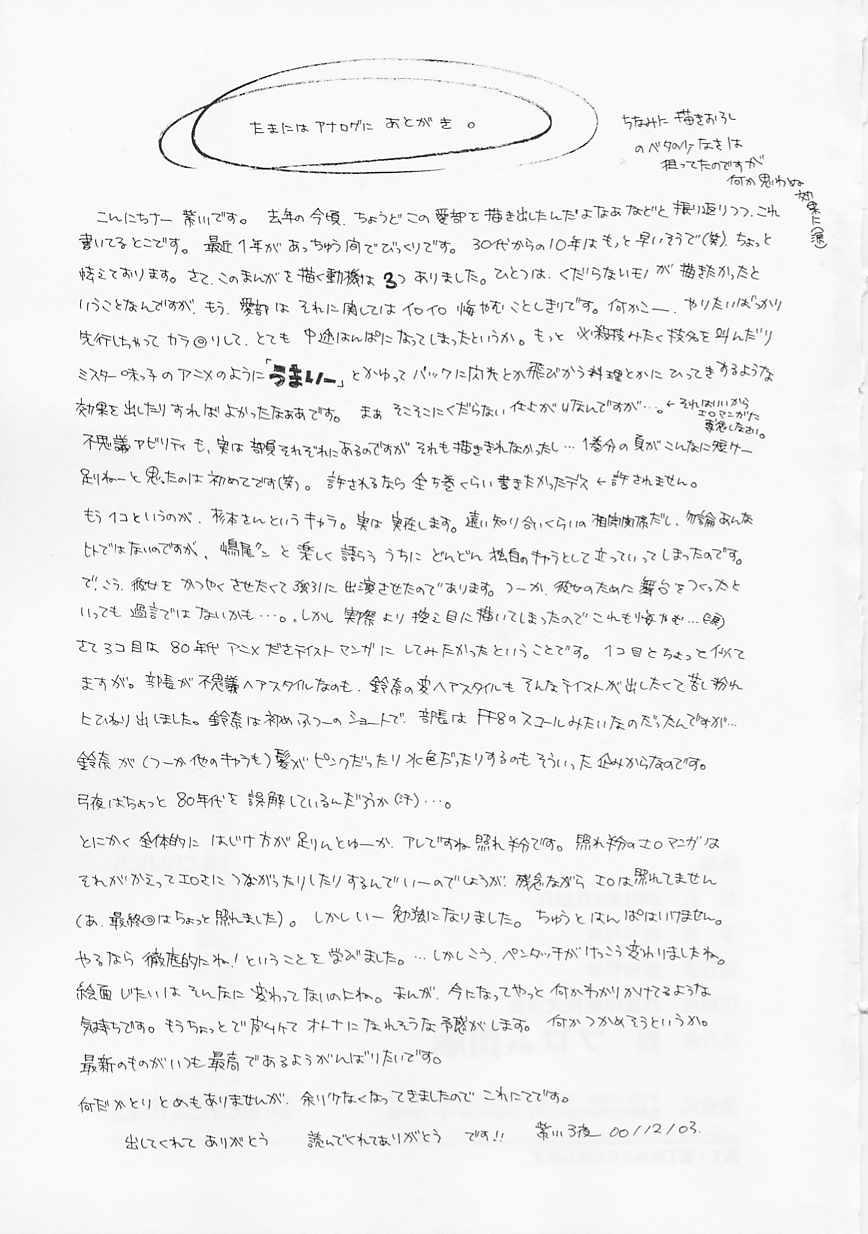 たまにはアナログに あとがき。
ちなみに 描きおろし
のベタのりなさは
狙ってたのですが
何か思わぬ
効果に(涙)
こんにちナー 紫川です。 去年の今頃、ちょうど この 愛部を 描き出したんだよなあ などと 振り返りつつ、これ
書いてるとこです。 最近 1年が あっちゅう間で びっくりです。 30代からの10年は もっと 早いそうで(笑)、ちょっと
怯えております。さて、このまんがを描く動機は 3つ ありました。ひとつは、くだらないモノ が 描きたかったと
いうことなんですが、もう、愛部は それに関しては イロイロ 悔やむ ことしきりです。何かこー、やりたいばっかり
先行しちゃって カラ◎りして、とても 中途はんぱに なってしまったというか。もっと 必殺技みたく 技名を 叫んだり
ミスター味っ子の アニメのように「うまいー」とかゆって バックに閃光とか 飛びかう 料理とかに ひってきするような
効果を 出したり すれば よかったなぁあです。 まぁ そこそこに くだらない 仕上がりなんですが…。←それはいいから
エロマンガだ
不思議アビリティも、実は 部員それぞれに あるのですが それも 描ききれなかったし… 1巻分の頁が こんなに 短けー
足りねーと 思ったのは 初めてです(笑)。 許されるなら 全5巻くらい 書きたかったデス ← 許されません。
もう1コというのが、杉本さんというキャラ。実は 実在します。遠い知り合いくらいの 相関関係だし、勿論あんな
ヒトではないのですが、 嶋尾クン と 楽しく 語らう うちに どんどん 独自のキャラとして 立っていってしまったのです。
で、こう、彼女を かつやく させたくて 強引に 出演させたのであります。つーか、彼女のために 舞台をつくったと
いっても 過言では ないかも …。しかし 実際より 控え目に描いてしまったので これも悔やむ…(涙)
さて 3コ目は 80年代 アニメ だきテイスト マンガ に してみたかったということです。 1コ目と ちょっと 似て
ますが。部長が 不思議ヘアスタイルなのも、鈴奈の変ヘアスタイルも そんなテイストが 出したくて 苦し紛れ
にひねり出しました。鈴奈は 初め ふつーの ショートで、部長は FF8の スコールみたいなの だったんですが…
鈴奈 が (つーか 他のキャラも) 髪が ピンクだったり 水色だったりするのも そういった 企みからなのです。
弓夜はちょっと 80年代を 誤解しているんだろうか(汗)…。
とにかく 全体的に はじけ方が 足りんとゅーか、アレですね 照れ半分です。 照れ半分の エロマンガは
それが かえって エロさに つながったりしたり するんで いーのでしょうが、残念ながら エロは照れてません
(あ、最終◎は ちょっと 照れました)。 しかし いー 勉強に なりました。 ちゅうと はんぱは いけません。
やるなら 徹底的にね! ということを 学びました。… しかしこう、ペンタッチが けっこう 変わりましたね。
絵画 じたいは そんなに 変わってないのにね。まんが、今になって やっと 何か わかりかけてるような
気持ちです。もうちょっとで 向けて オトナに なれそうな 予感がします。 何か つかめそうというか。
最新のものが いつも 最高 であるよう がんばりたいです。
何だか とりとめも ありませんが、余リクなくなって きましたので これにてです。
出してくれて ありがとう 読んでくれてありがとう です!! 紫川弓夜 00/12/03.